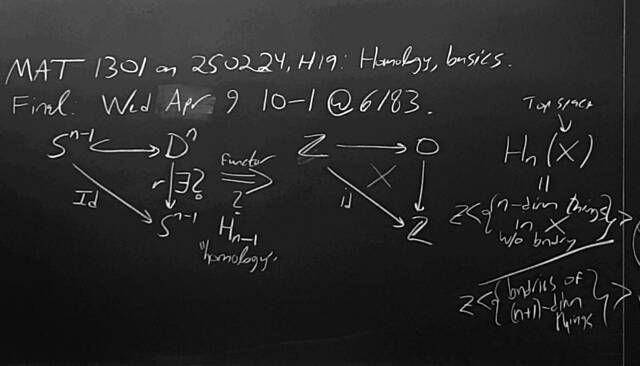 MAT 1301 on 250224, H19: Homology, basics.
Final: Wed Apr 9 10-1 @ 6183.
S^{n-1} ↪ D^n
r ∃?
Id
S^{n-1}
Functor
⇒
?
H_{n-1}
"homology"
Z → 0
id
Z
Top space
H_n(X)
=
Z<{n-dim things in X w/o bndry}>
Z<{bndries of (n+1)-dim things}>